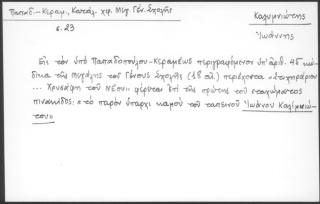 Παπαδ.-Κεραμ., Κατάλ. χφ. Μεγ. Γέν. Σχολῆς
Καλυμνιώτης
σ. 23
Ἰωάννης
Εἰς τὸν ὑπὸ Παπαδοπούλου-Κεραμέως περιγραφόμενον ὑπ' ἀριθ. 45 κώ-
δικα τῆς Μεγάλης τοῦ Γένους Σχολῆς (18 αἰ.) περιέχοντα «Στιχηράριον
... Χρυσάφη τοῦ Νέου» φέρεται ἐπὶ τῆς πρώτης τοῦ σταχώματος
πινακίδος: «τὸ παρὸν ὑπάρχι καμοῦ τοῦ ταπεινοῦ Ἰωάνου Καλιμνιώ-
του»